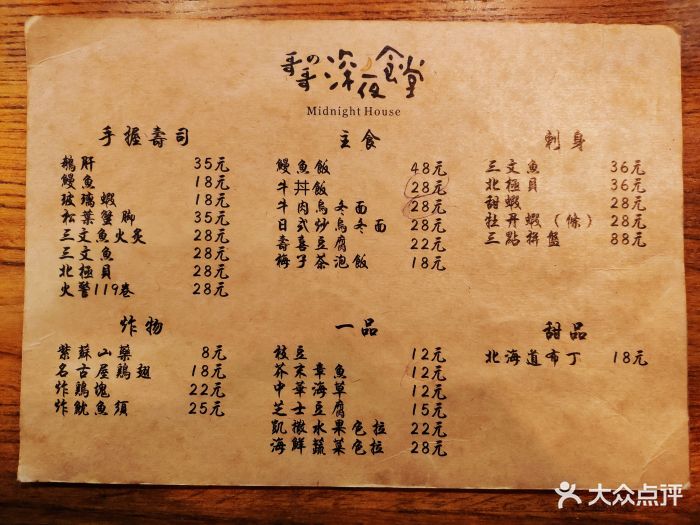 哥の哥深夜食堂
Midnight House
手握壽司
鵝肝 35元
鰻魚 18元
玻璃蝦 18元
松葉蟹腳 35元
三文魚火炙 28元
三文魚 28元
北極貝 28元
火警119卷 28元
主食
鰻魚飯 48元
牛丼飯 28元
牛肉烏冬面 28元
日式炒烏冬面 28元
壽喜豆腐 22元
梅子茶泡飯 18元
刺身
三文魚 36元
北極貝 36元
甜蝦 28元
牡丹蝦（條） 28元
三點拼盤 88元
炸物
紫蘇山藥 8元
名古屋鶏翅 18元
炸鶏塊 22元
炸魷魚須 25元
一品
枝豆 12元
芥末章魚 12元
中華海草 12元
芝士豆腐 15元
凱撒水果色拉 22元
海鮮蔬菜色拉 28元
甜品
北海道布丁 18元
大众点评